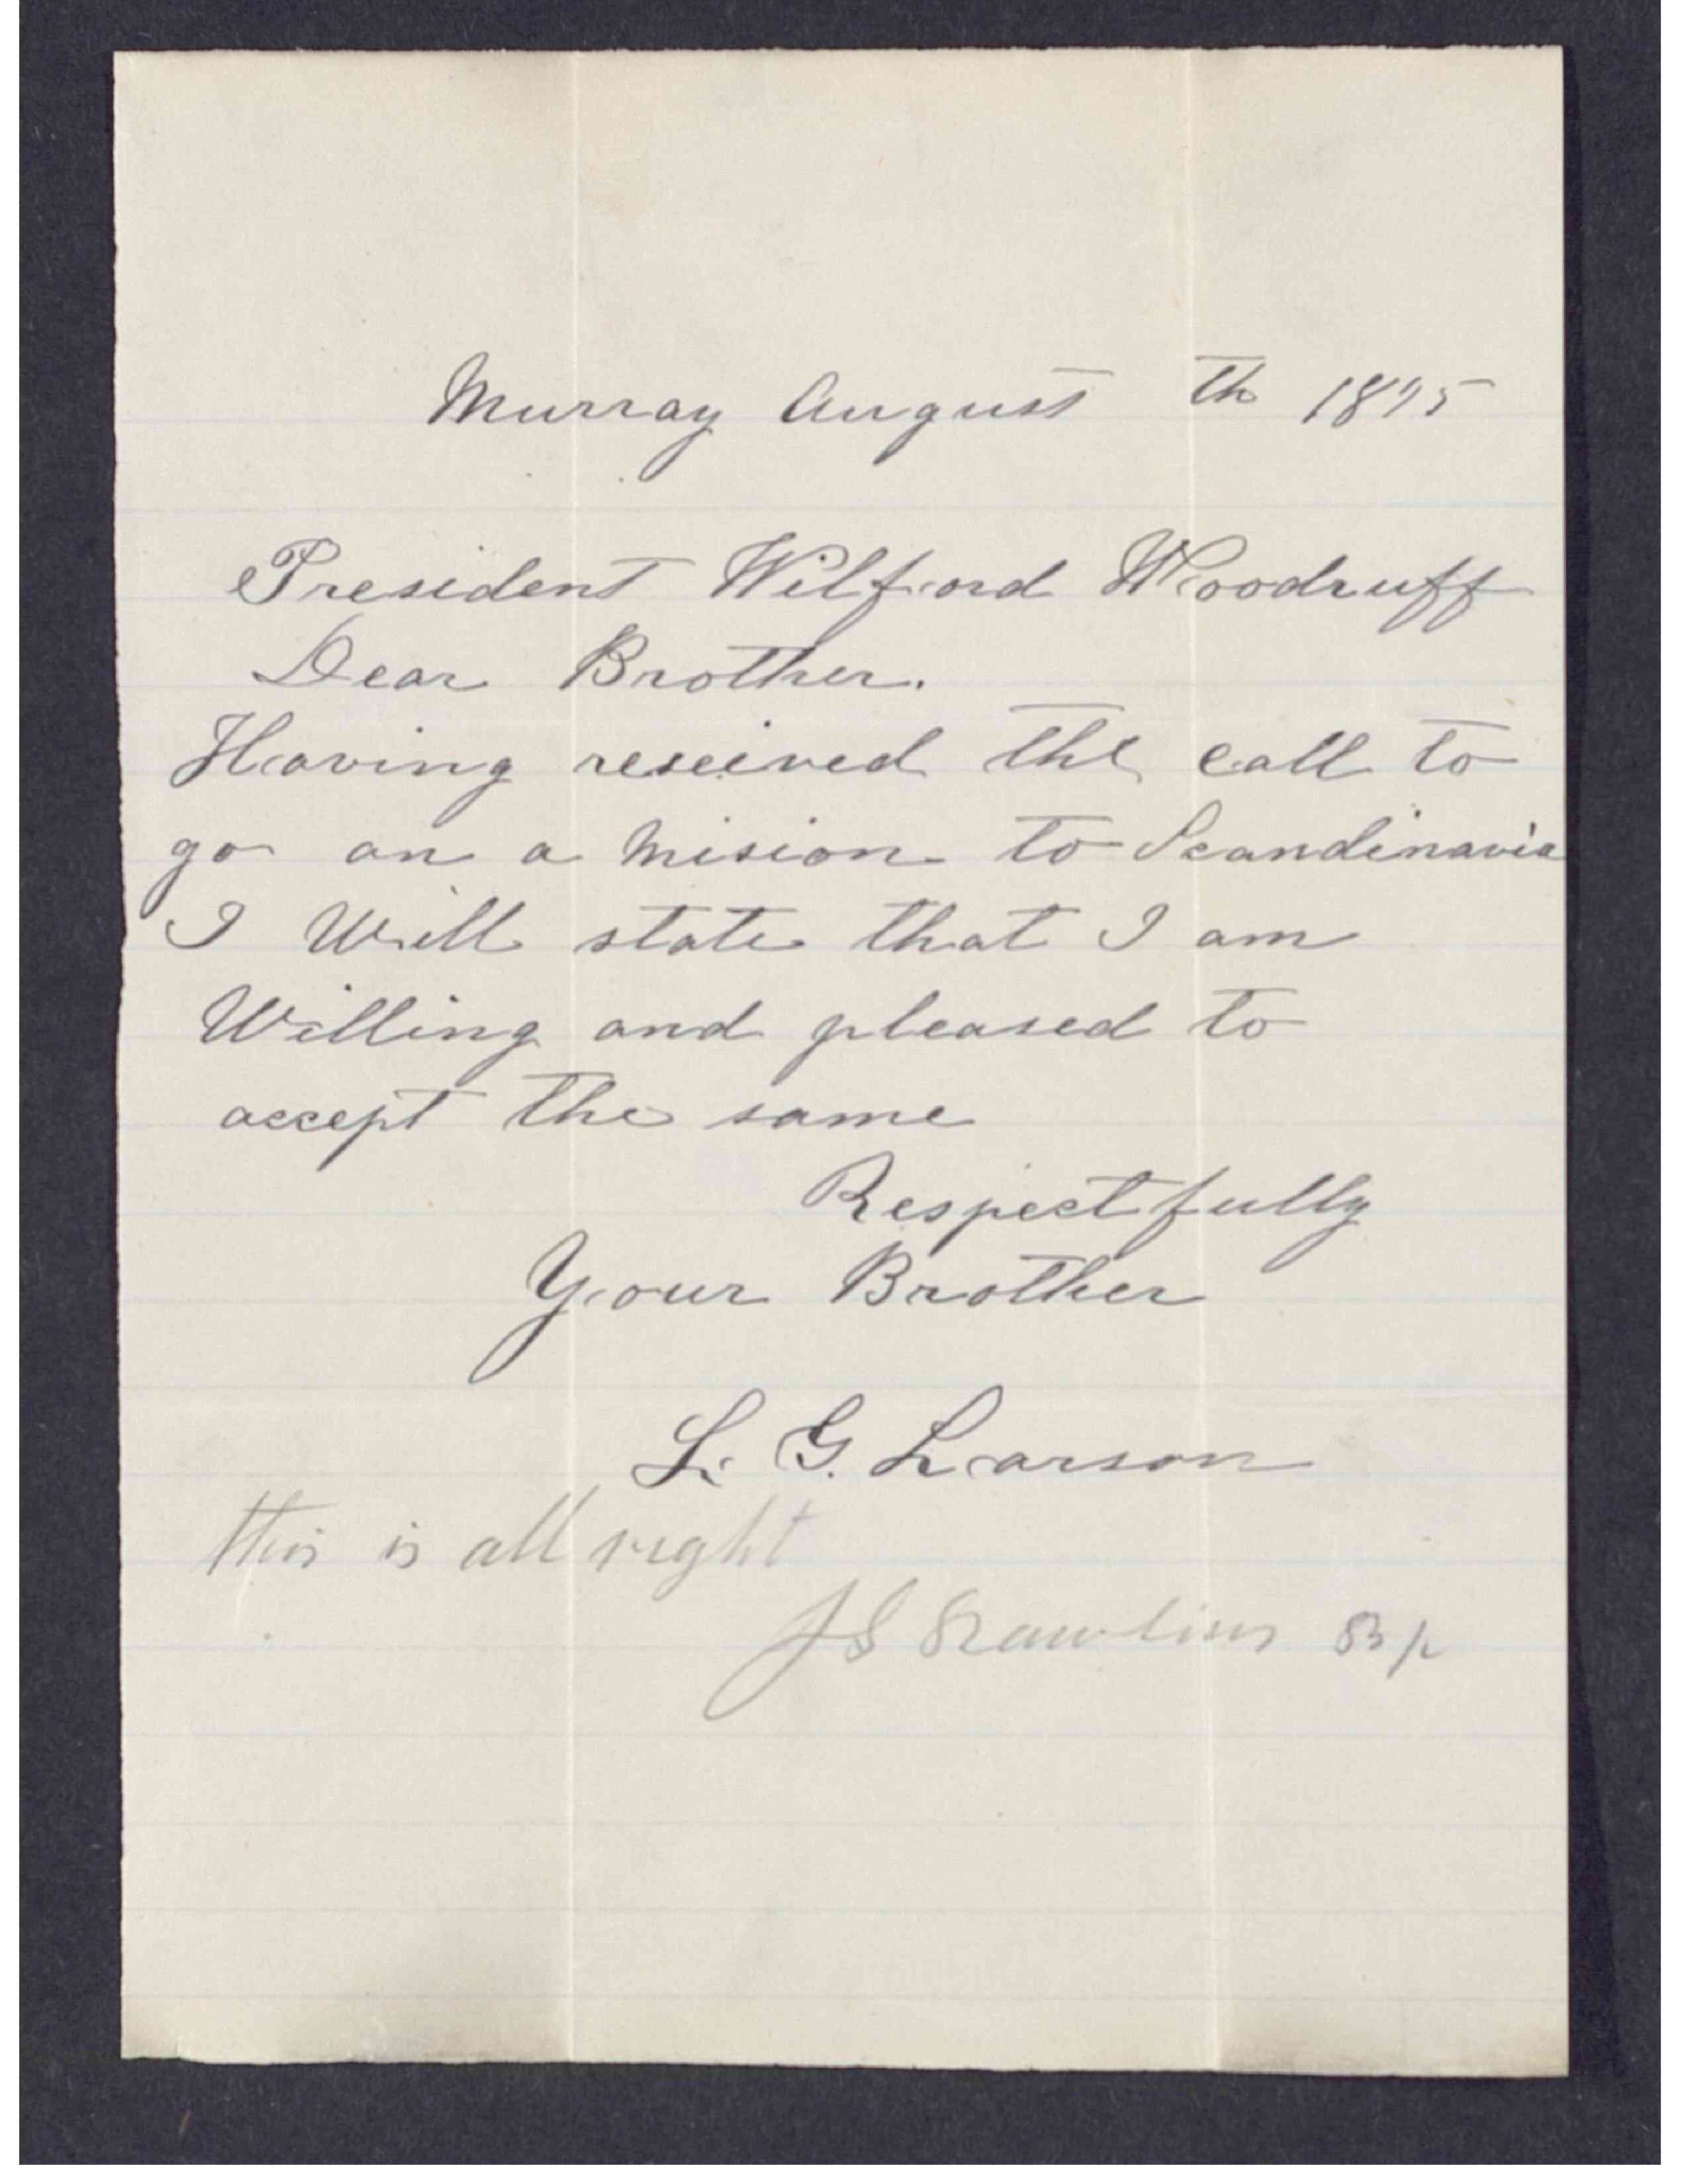 Murray August th 1895
President Wilford Woodruff
Dear Brother.
Having reseived the call to
go on a mision to Scandinavia
I Will state that I am
Willing and pleased to
accept the same
Respectfully
Your Brother
L. G. Larson
this is all right
J S Rawlins Bp